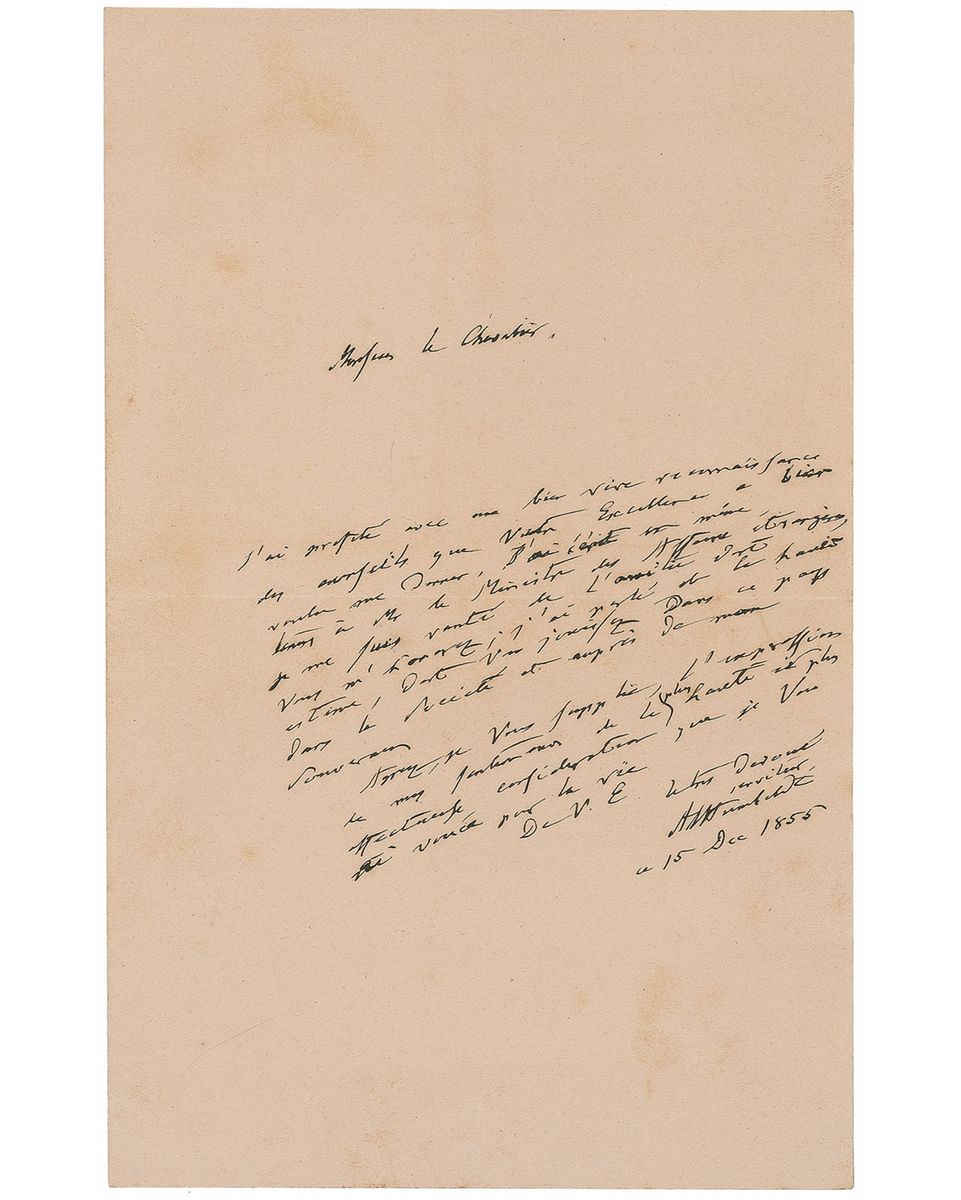 Monsieur le Chevalier,
J'ai profité avec une bien vive reconnaissance
des conseils que Votre Excellence a bien
voulu me donner, J'ai écrit en même
tems à Mr le Ministre des Affaires étrangères,
je me suis vanté de l'amitié dont
Vous m'honorez; j'ai parlé de la haute
estime, dont Vous jouissez dans ce pays
dans la Société et auprès de mon
Souverain
Agréez, je Vous supplie, l'expression
de mes sentimens de la plus haute et plus
affectueuse considération que je Vous
ai vouée pour la vie
De V. E. le très dévoué
serviteur,
AvHumboldt
ce 15 Dec 1855